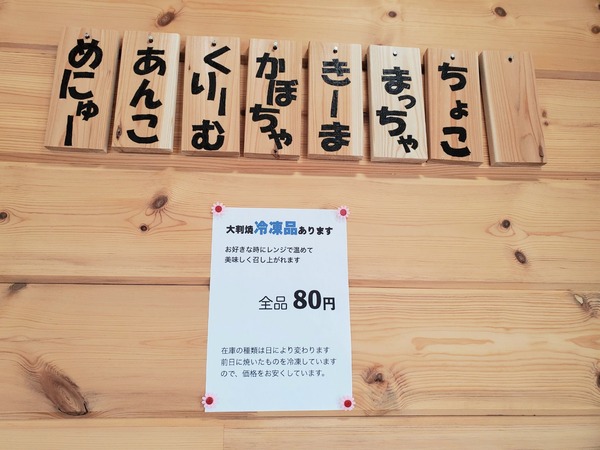 めにゅー
あんこ
くりーむ
かぼちゃ
きーま
まっちゃ
ちょこ
大判焼冷凍品あります
お好きな時にレンジで温めて
美味しく召し上がれます
全品 80円
在庫の種類は日により変わります
前日に焼いたものを冷凍しています
ので、価格をお安くしています。